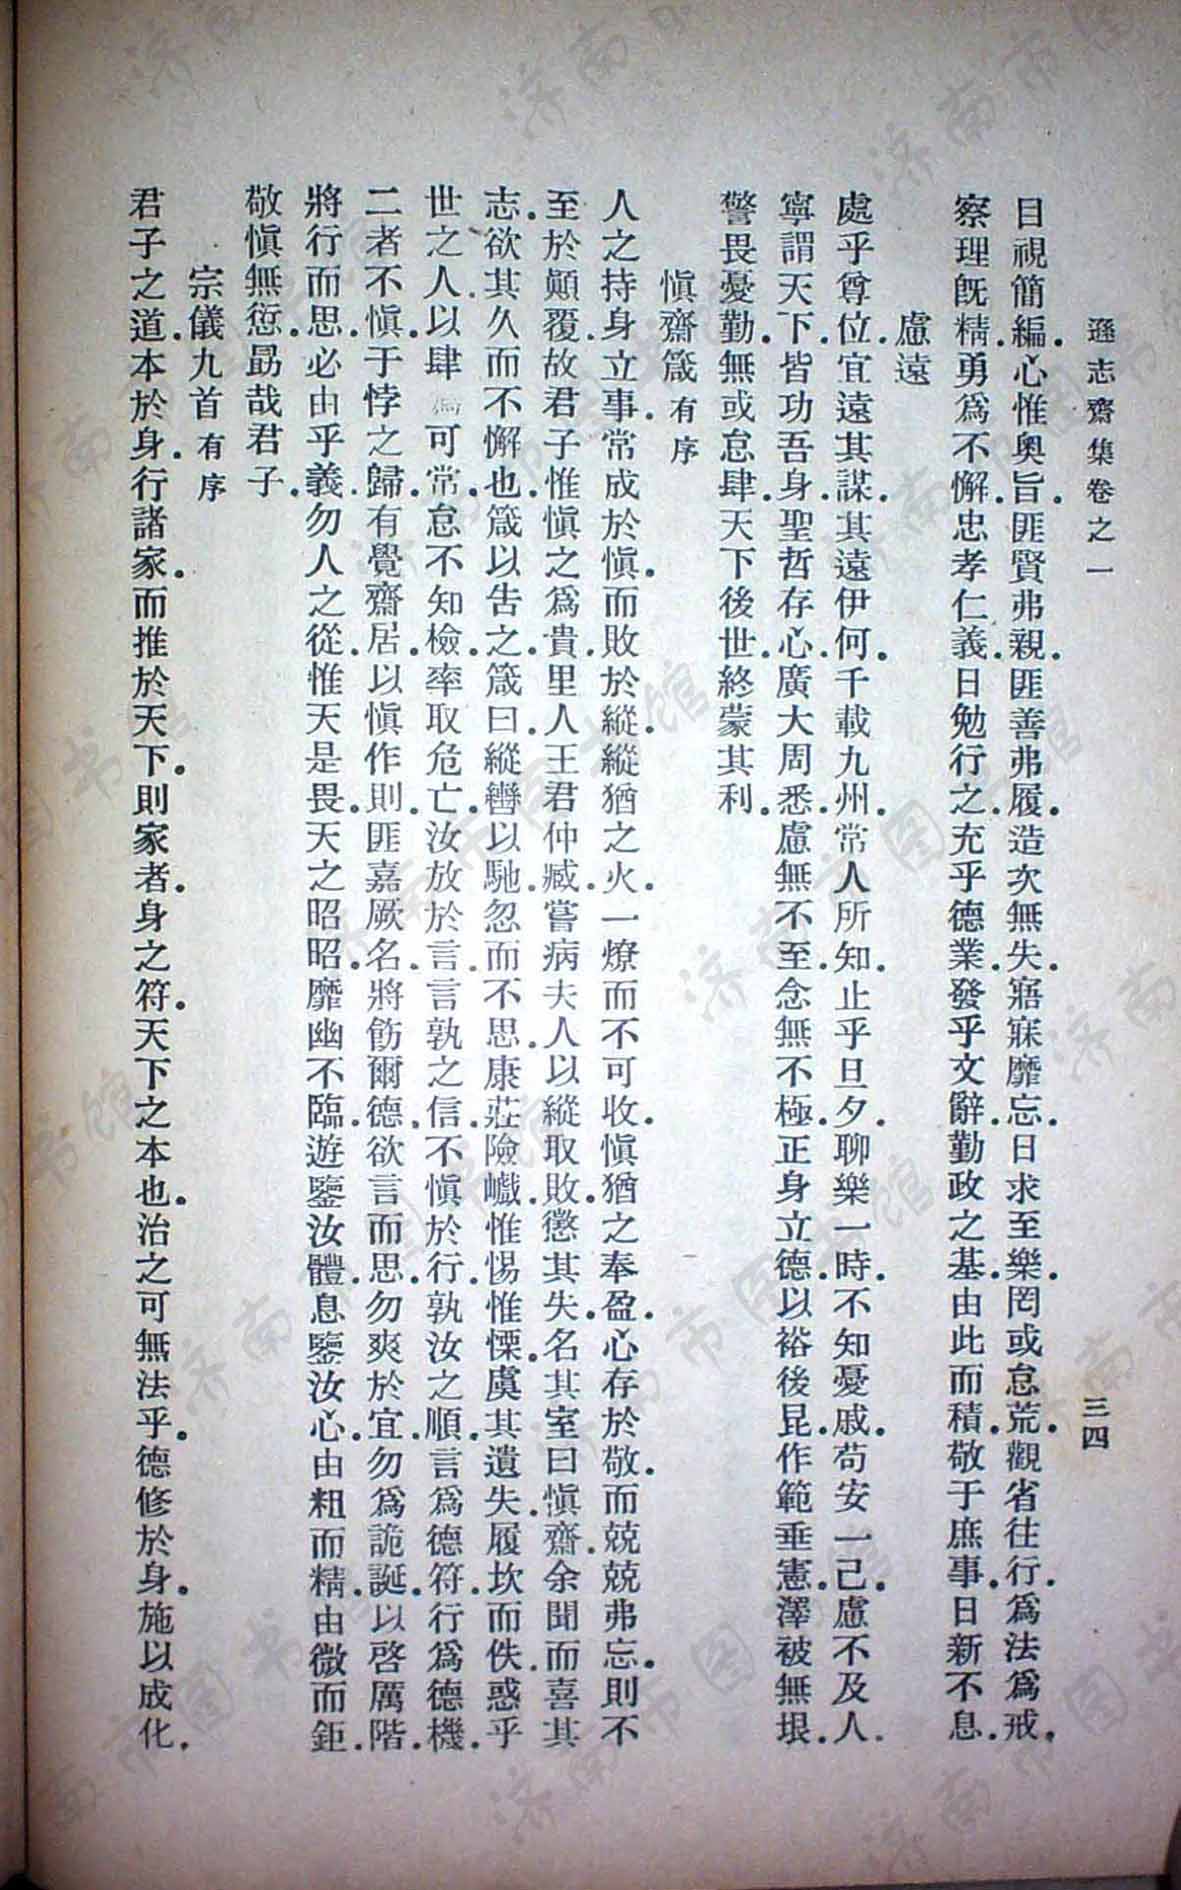 遜志齋集卷之一
三四
日視簡編.心惟奧旨.匪賢弗親.匪善弗履.造次無失.寤寐靡忘.日求至樂.罔或怠荒.觀省往行.爲法爲戒.
察理旣精.勇爲不懈.忠孝仁義.日勉行之.充乎德業.發乎文辭.勤政之基.由此而積.敬于庶事.日新不息.
慮遠
處乎尊位.宜遠其謀.其遠伊何.千載九州.常人所知.止乎旦夕.聊樂一時.不知憂戚.苟安一己.慮不及人.
寧謂天下.皆功吾身.聖哲存心.廣大周悉.慮無不至.念無不極.正身立德.以裕後昆.作範垂憲.澤被無垠.
警畏憂勤.無或怠肆.天下後世.終蒙其利.
愼齋箴有序
人之持身立事.常成於愼.而敗於縱.縱猶之火.一燎而不可收.愼猶之奉盈.心存於敬.而兢兢弗忘.則不
至於顚覆.故君子惟愼之爲貴.里人王君仲臧.嘗病夫人以縱取敗.懲其失.名其室曰愼齋.余聞而喜其
志.欲其久而不懈也.箴以告之.箴曰.縱轡以馳.忽而不思.康莊險巇.惟惕惟慄.虞其遺失.履坎而佚.惑乎
世之人.以肆可常.怠不知檢.率取危亡.汝放於言.言孰之信.不愼於行.孰汝之順.言爲德符.行爲德機.
二者不愼.于悖之歸.有覺齋居.以愼作則.匪嘉厥名.將飭爾德.欲言而思.勿爽於宜.勿爲詭誕.以啓厲階.
將行而思.必由乎義.勿人之從.惟天是畏.天之昭昭.靡幽不臨.遊鑒汝體.息鑒汝心.由粗而精.由微而鉅.
敬愼無愆.勗哉君子.
宗儀九首有序
君子之道.本於身.行諸家.而推於天下.則家者.身之符.天下之本也.治之可無法乎.德修於身.施以成化.